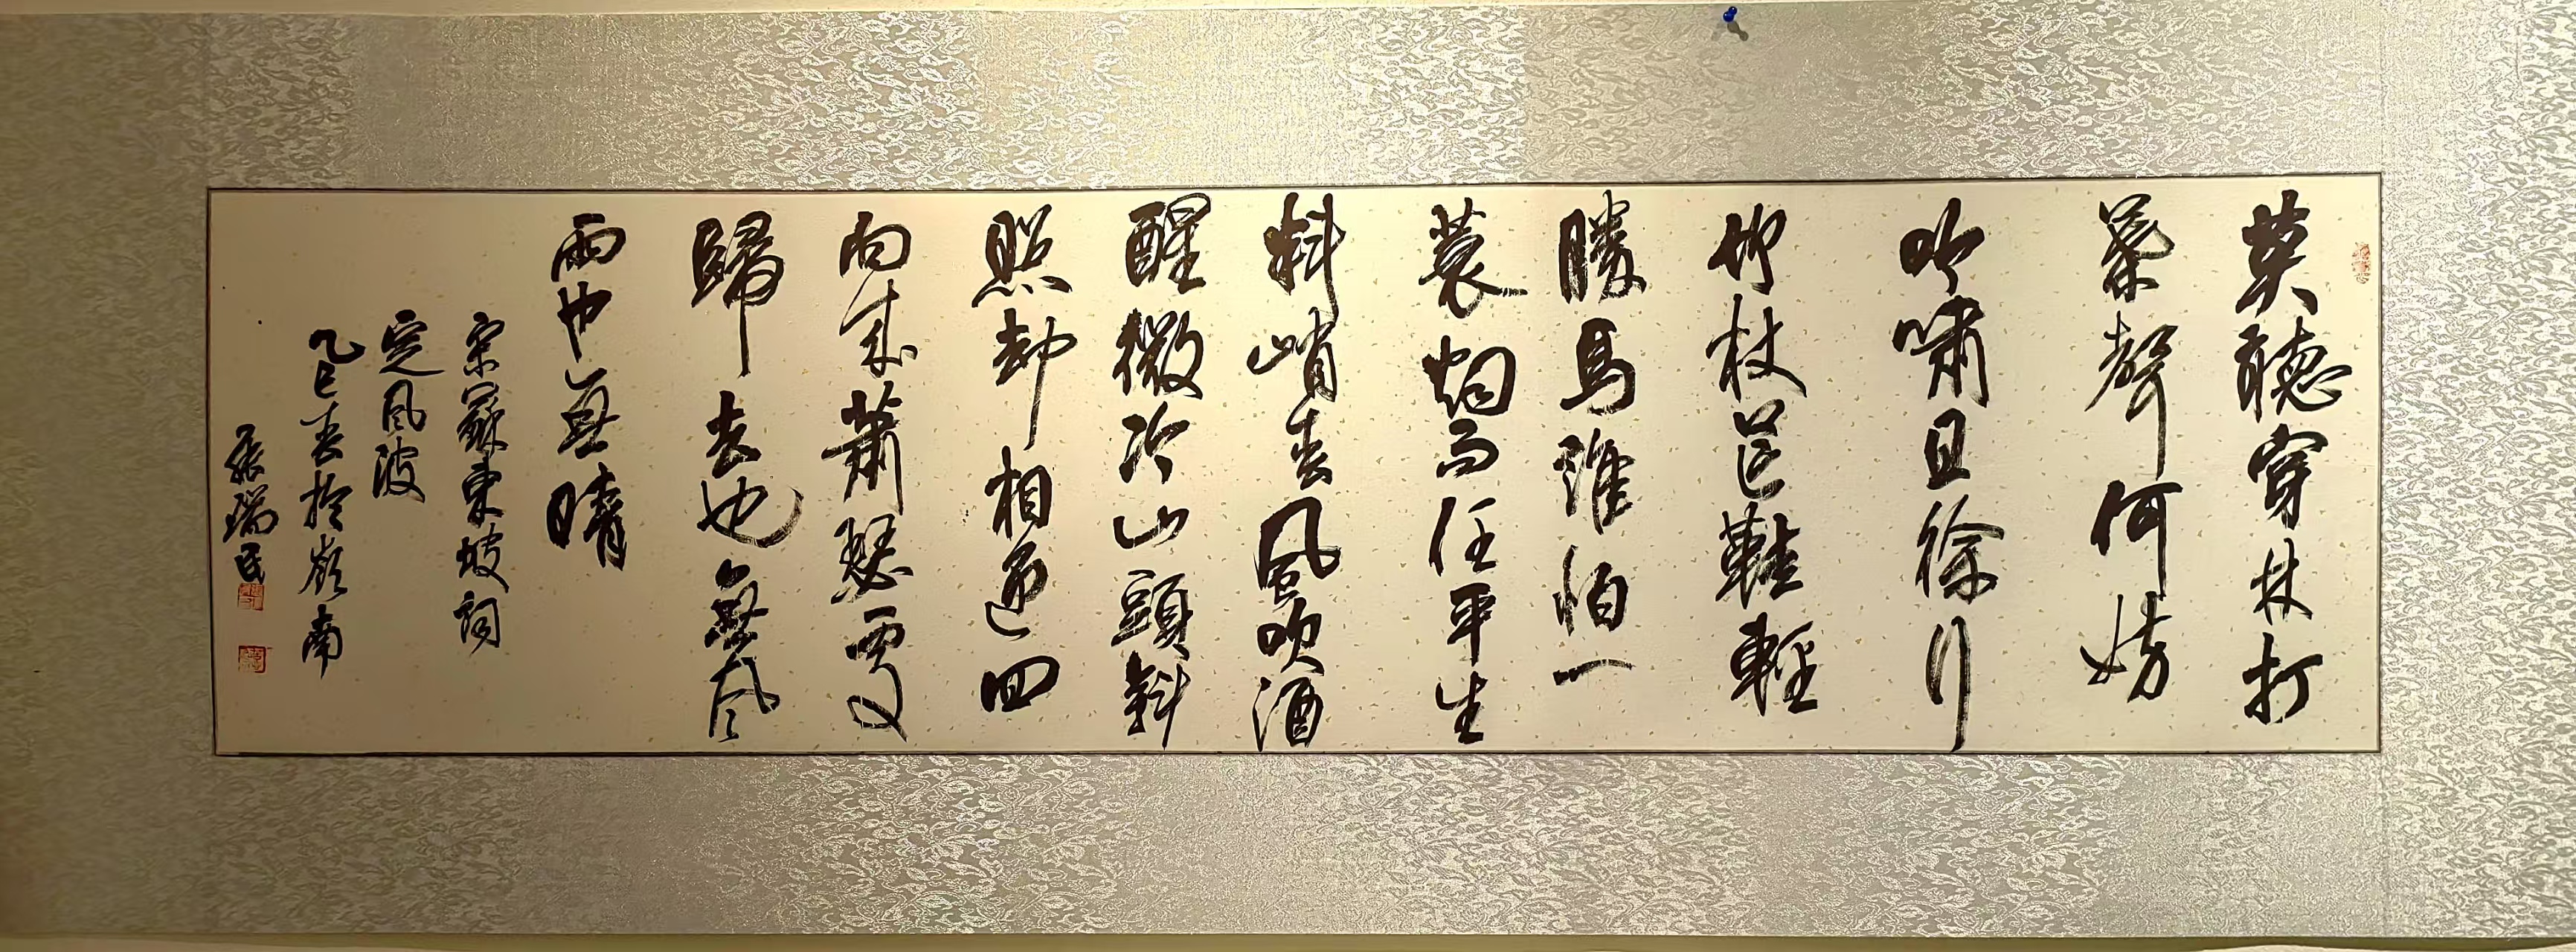 莫聽穿林打
葉聲何妨
吟嘯且徐行
竹杖芒鞋輕
勝馬誰怕一
蓑烟雨任平生
料峭春風吹酒
醒微冷山頭斜
照却相迎回
向來蕭瑟處
歸去也無風
雨也無晴
宋蘇東坡詞
定風波
乙巳春於嶺南
張瑞民